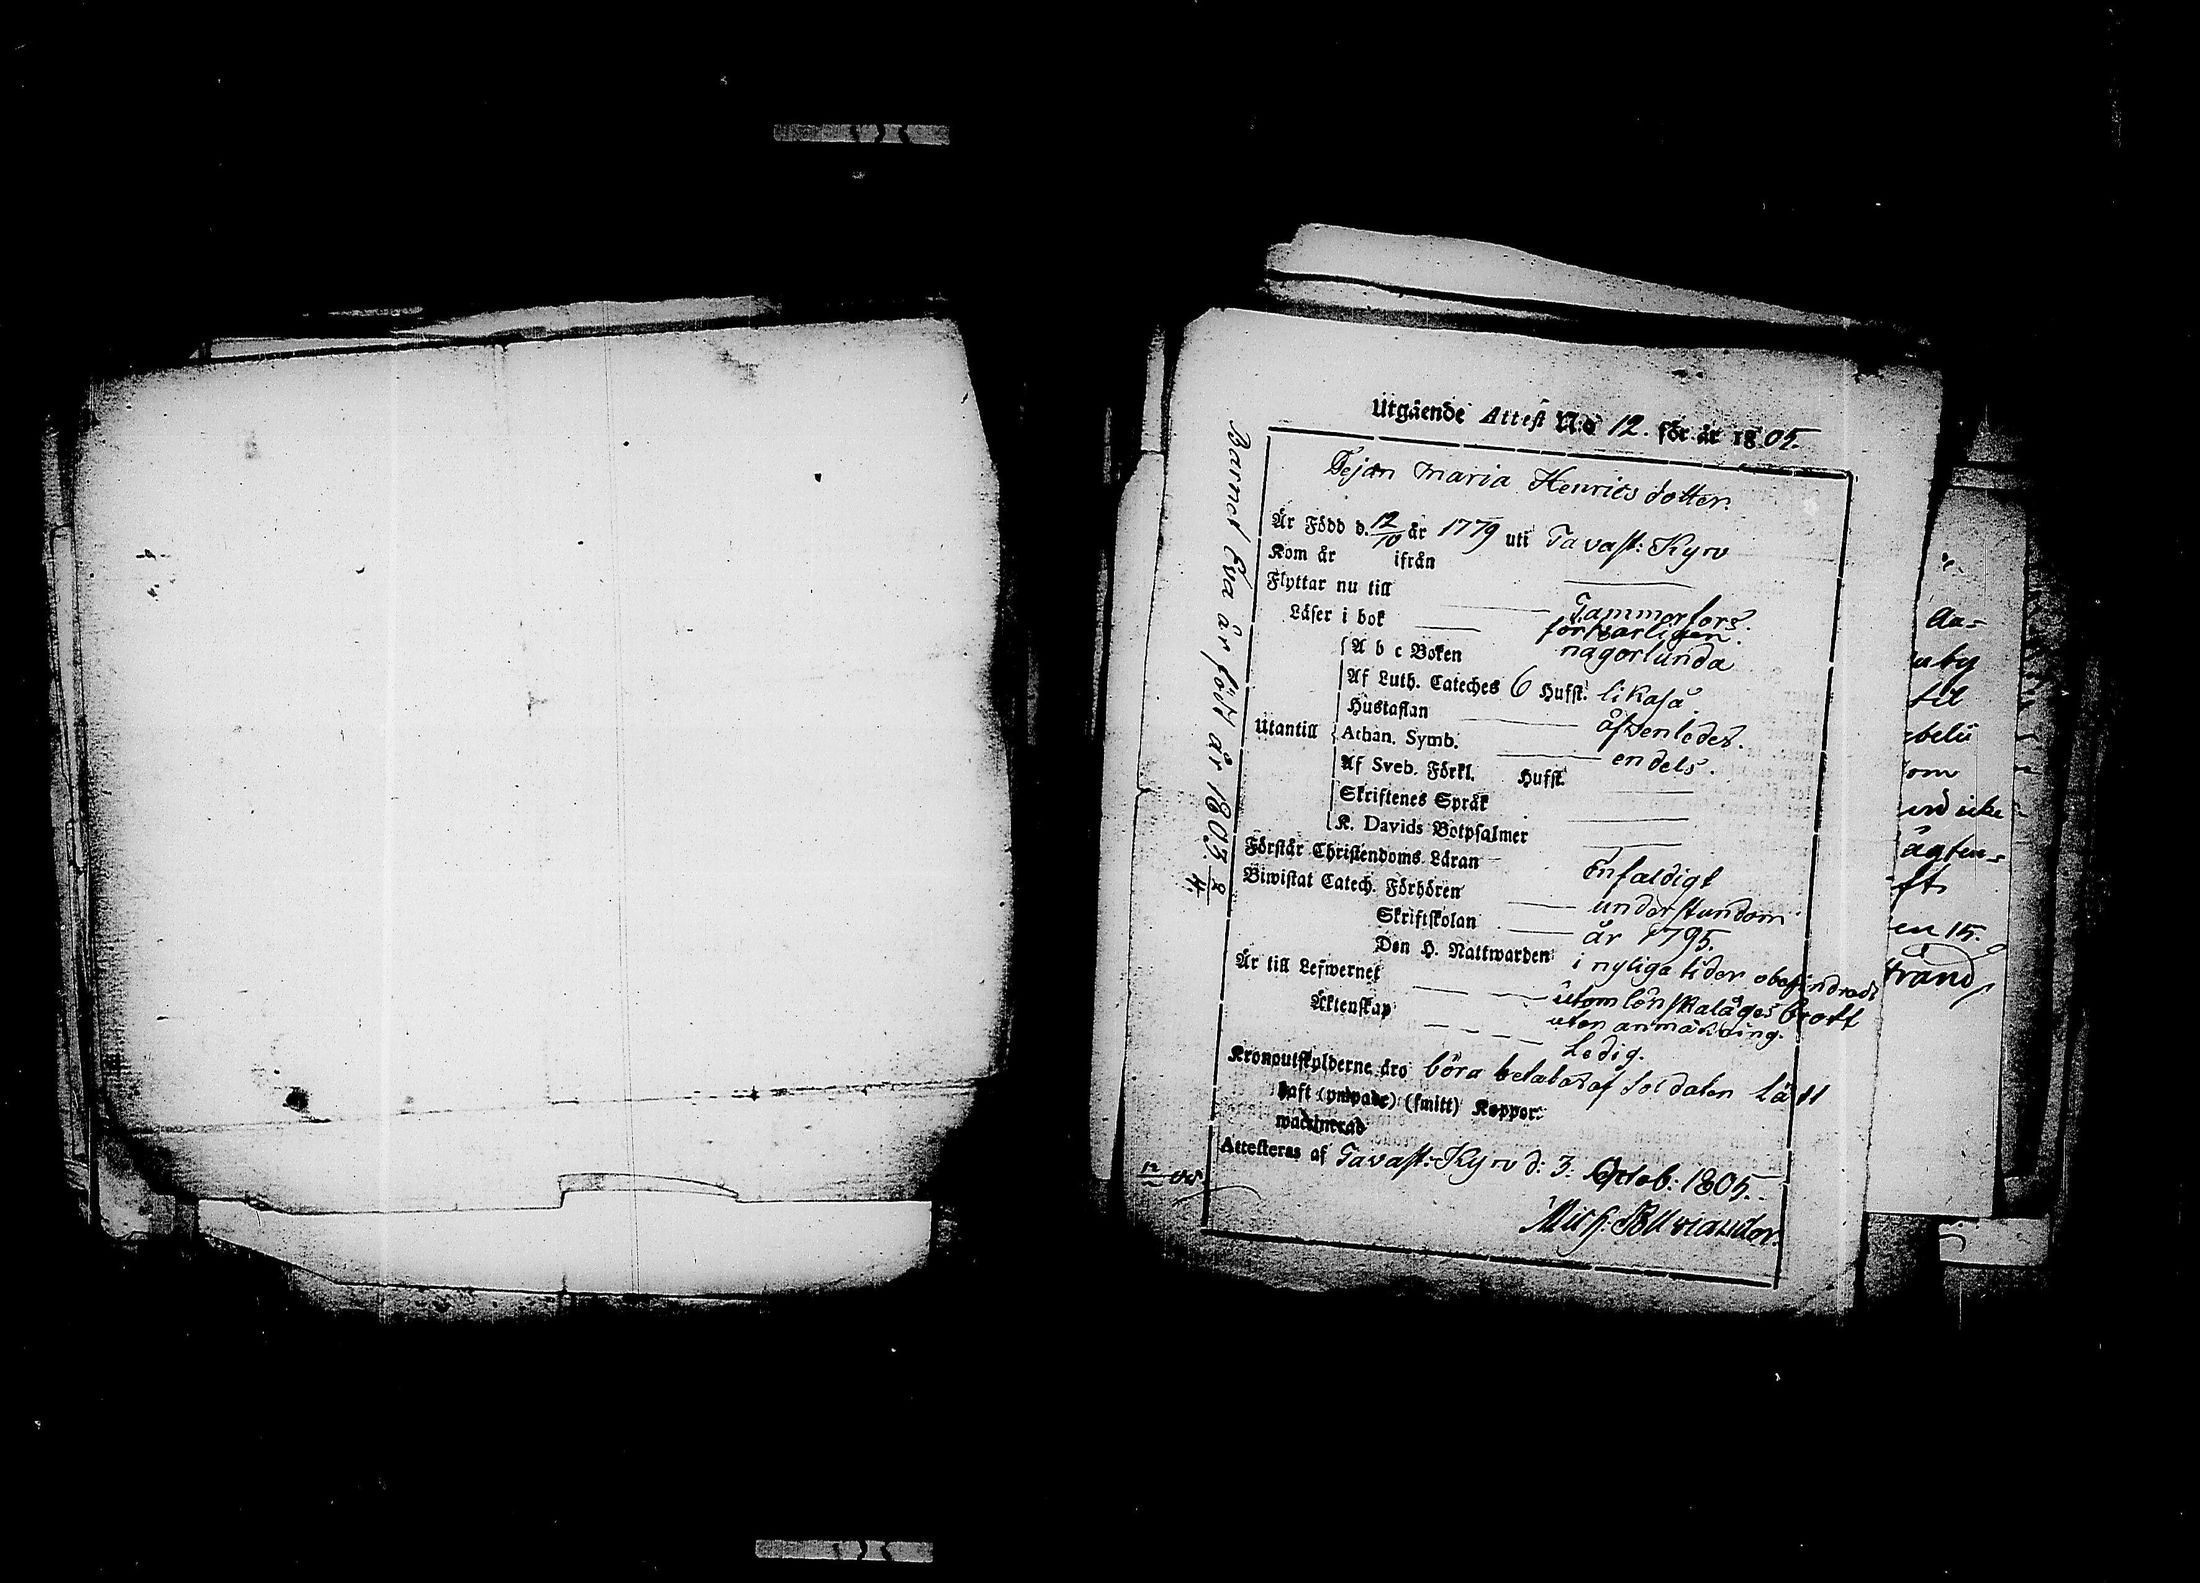 Utgående Attest N:o 12. för år 1805.
Pejan Maria Henrics dotter.
Är Född d. 12/10 år 1779 uti Tavast: Kyro
Kom år ifrån
Flyttar nu till Tammerfors.
Läser i bok försvarligen.
Utantill
A b c Boken någorlunda
Af Luth. Cateches 6 Hufst. likaså.
Hustaflan åfvenledes.
Athan. Symb. endels.
Af Sveb. Förkl. Hufst.
Skriftenes Språk
K. Davids Botpsalmer
Förstår Christendoms Läran Enfaldigt
Biwistat Catech. Förhören understundom
Skriftskolan år 1795.
Den H. Nattwarden i nyliga tider obehindradt
Är till Lefwernet utom lönskalägesbrott
utan anmärkning.
Äktenskap Ledig.
Kronoutskylderne äro böra betalas af Soldaten Lätt
haft (ympade) (smitt) Koppor.
waccinerad
Attesteras af Tavast: Kyro d: 3. Octob: 1805.
Barnet Eva är född år 1803 2/4.
Aa=
aby
til
om
und icke
en 15.
strand